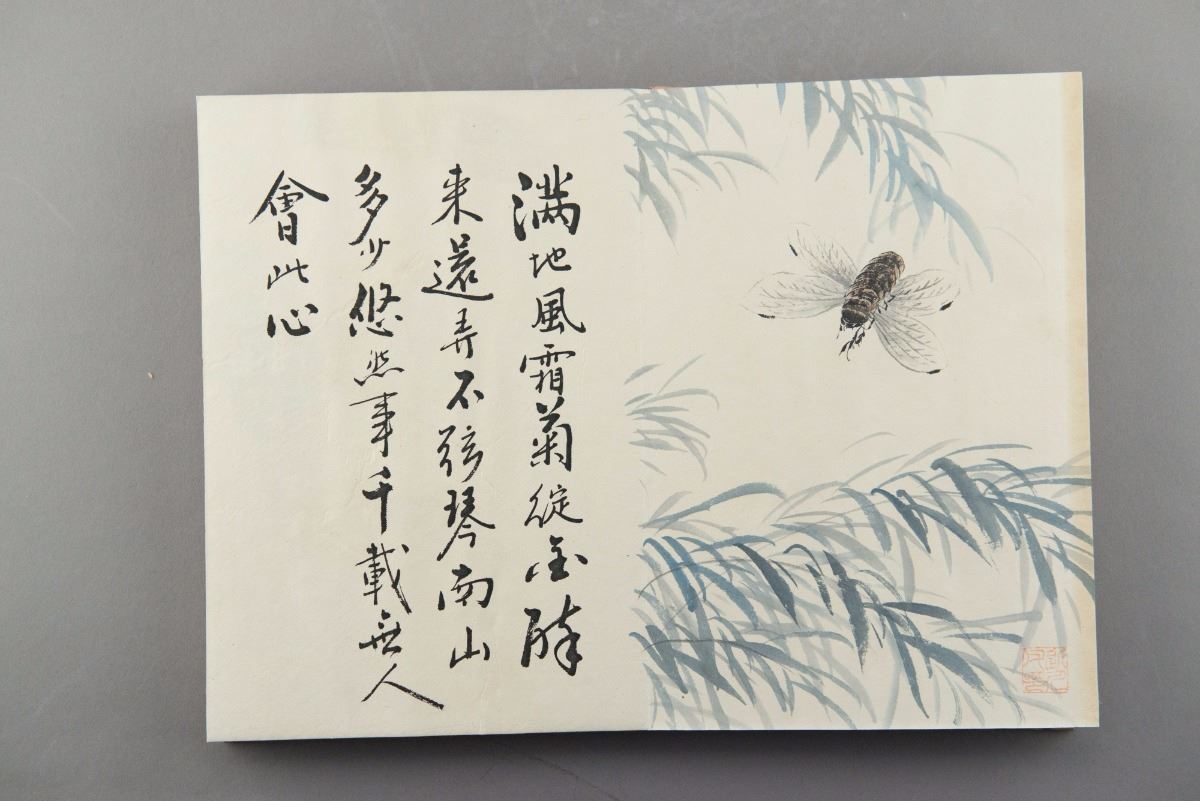 滿地風霜菊綻金醉
来還弄不弦琴南山
多少悠然事千載無人
會此心